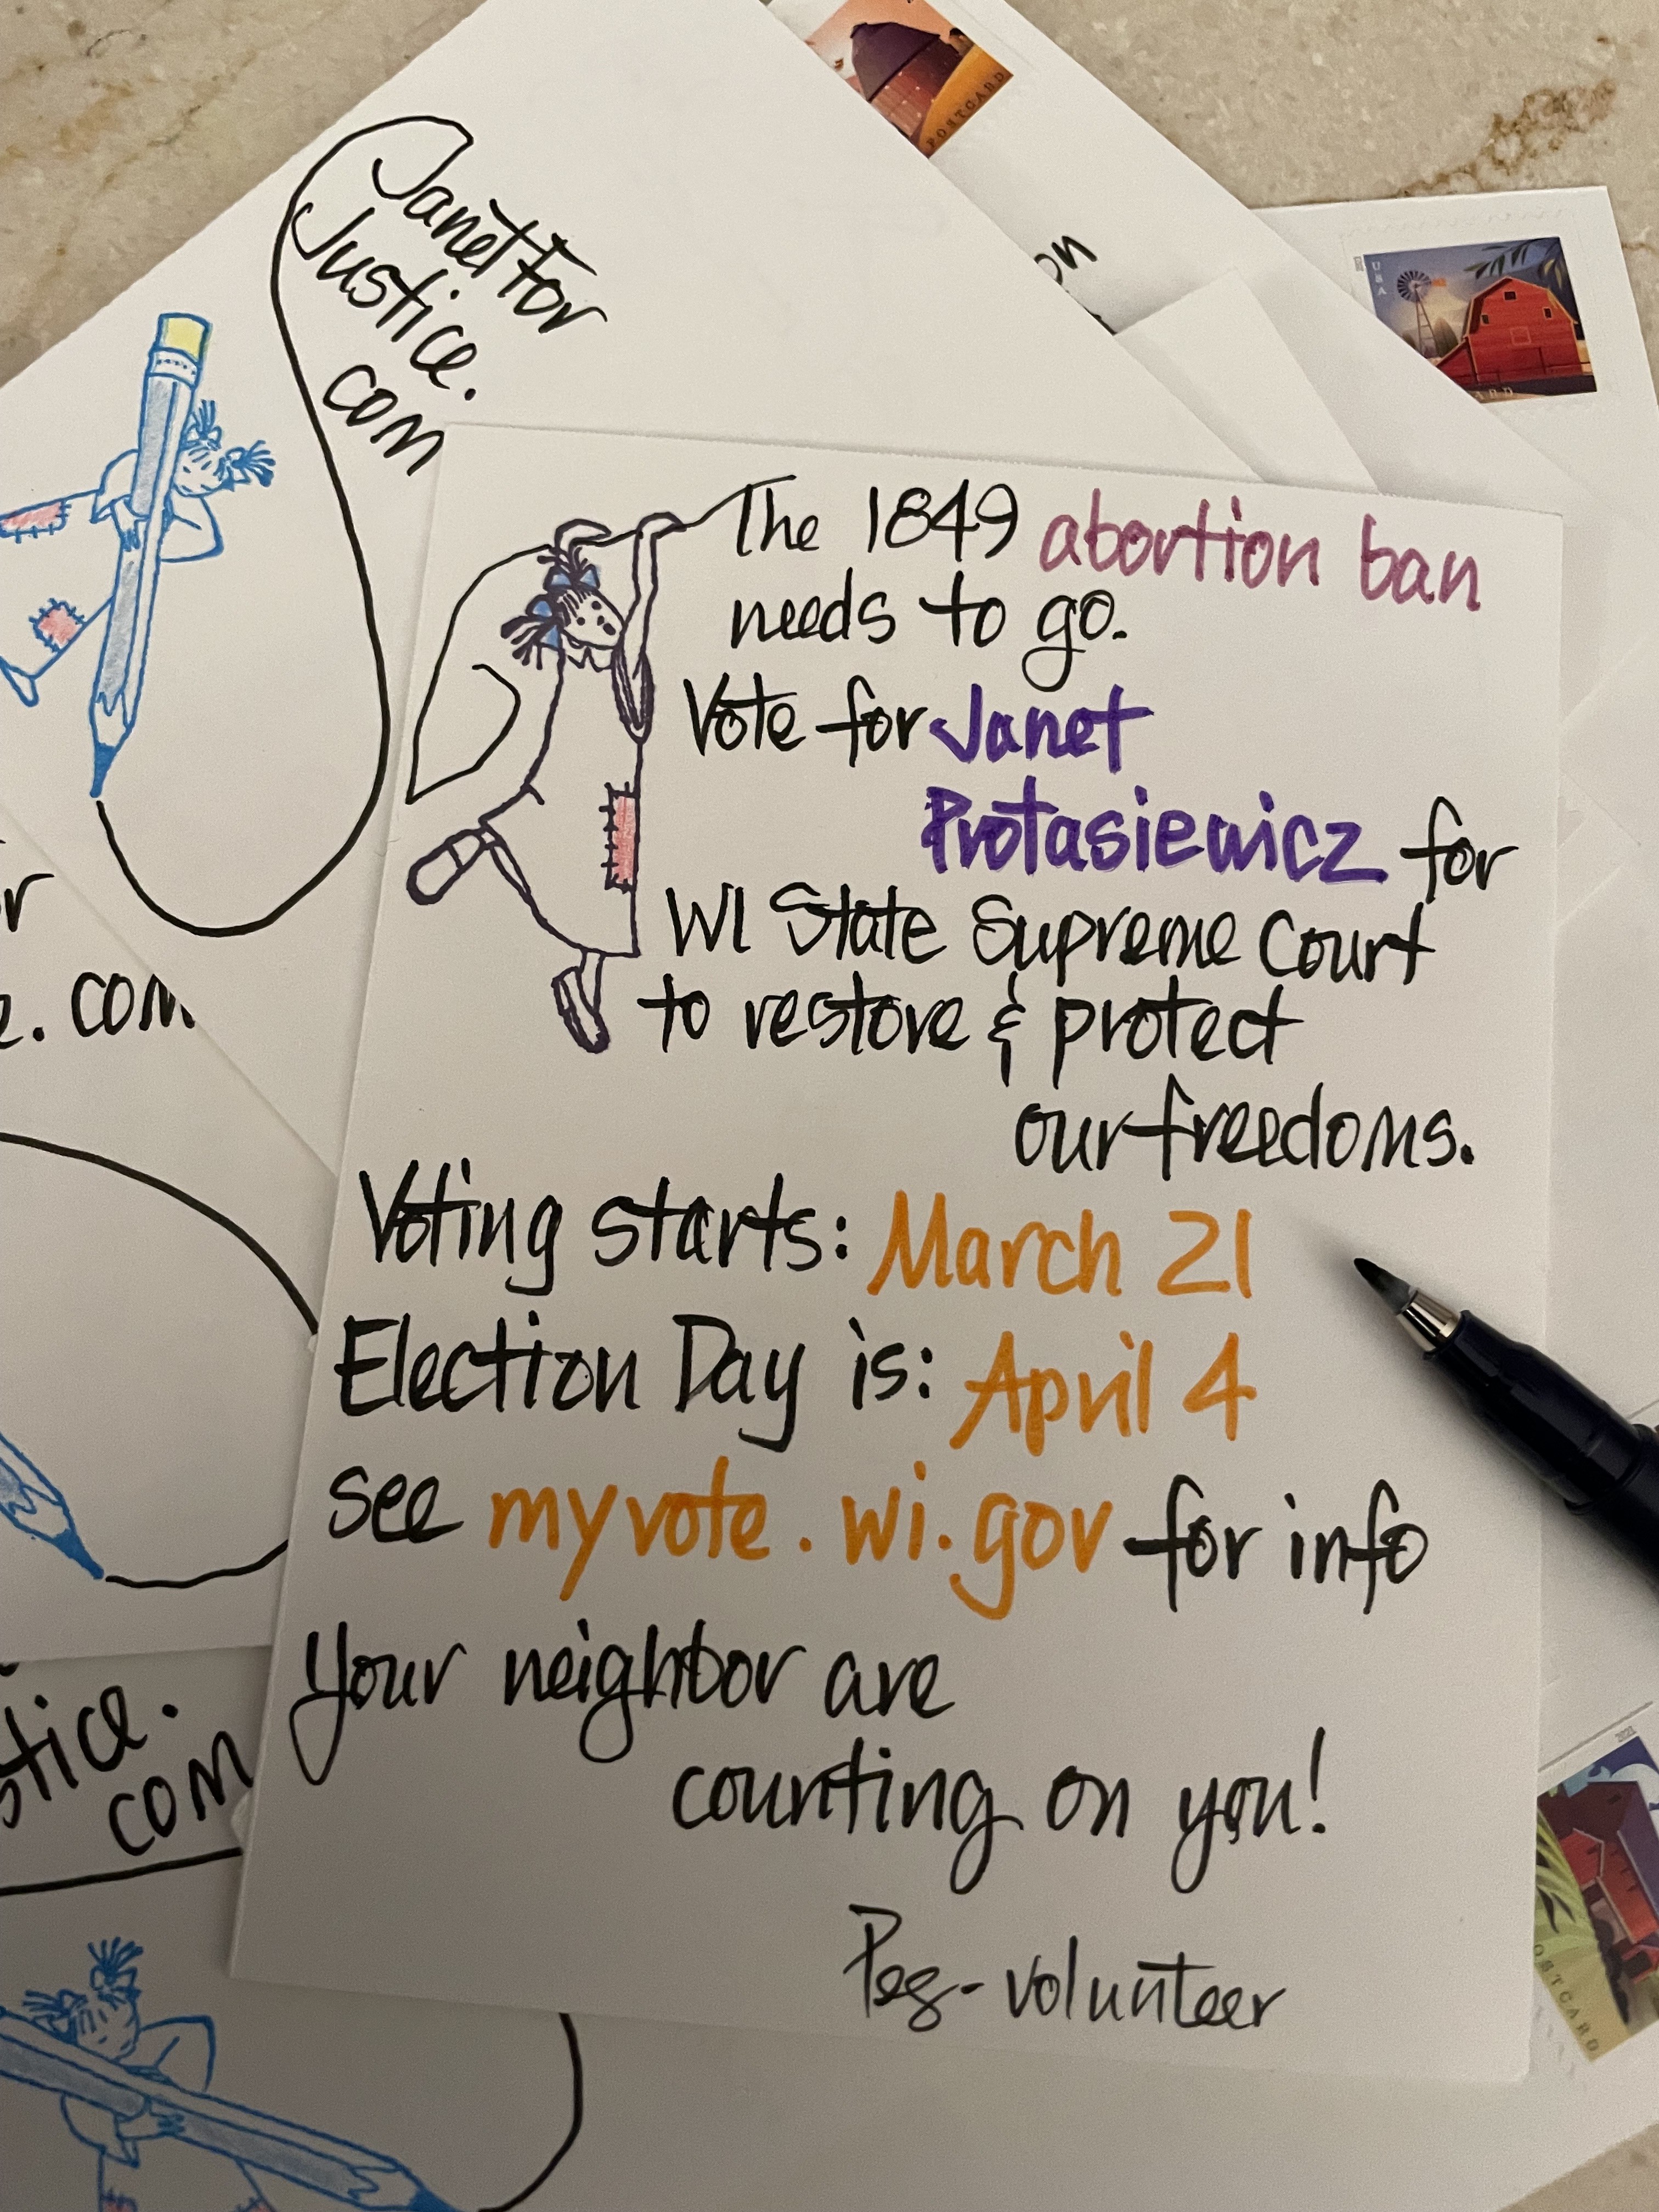 JanetFor
Justice.
com
on
POSTCARD
USA
The 1849 abortion ban
needs to go.
Vote for Janet
Protasiewicz for
WI State Supreme Court
to restore & protect
our freedoms.
Voting starts: March 21
Election Day is: April 4
see myvote.wi.gov for info
Your neighbor are
counting on you!
Peg-volunteer
r
e. com
stice.
com
2021
OSTCARD